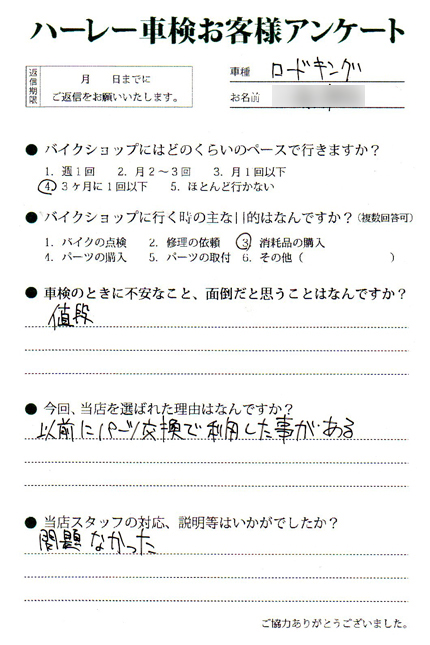 ハーレー車検お客様アンケート
返信期限
月　日までに
ご返信をお願いいたします。
車種 ロードキング
お名前
● バイクショップにはどのくらいのペースで行きますか？
1. 週1回　2. 月2〜3回　3. 月1回以下
4. 3ヶ月に1回以下　5. ほとんど行かない
● バイクショップに行く時の主な目的はなんですか？（複数回答可）
1. バイクの点検　2. 修理の依頼　3. 消耗品の購入
4. パーツの購入　5. パーツの取付　6. その他（　　　）
● 車検のときに不安なこと、面倒だと思うことはなんですか？
値段
● 今回、当店を選ばれた理由はなんですか？
以前にパーツ交換で利用した事がある
● 当店スタッフの対応、説明等はいかがでしたか？
問題なかった
ご協力ありがとうございました。